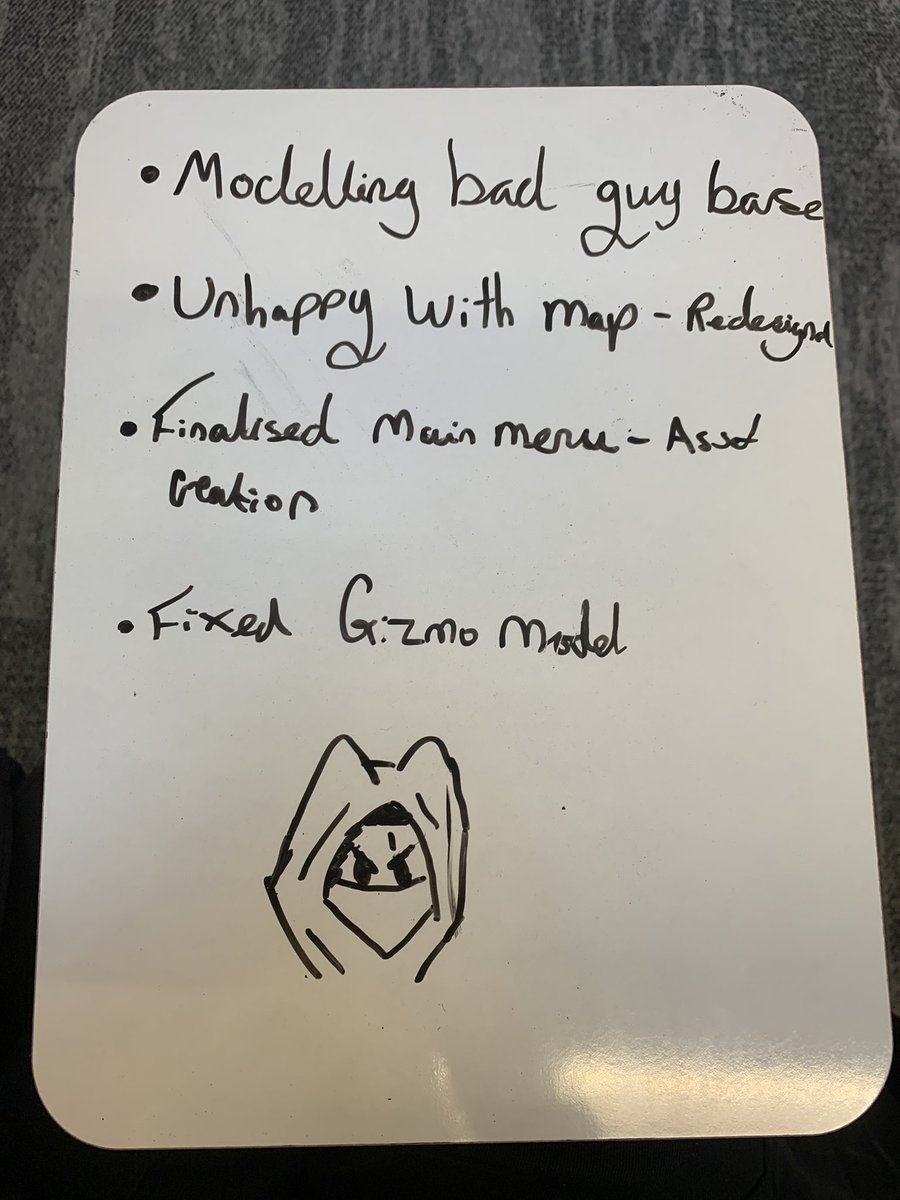 • Modelling bad guy base
• Unhappy with map - Redesignd
• Finalised Main menu - Asset
creation
• Fixed Gizmo Model